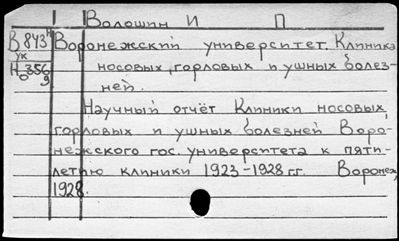 Волошин И П
В 843
ук
Воронежский университет. Клиника
носовых, горловых и ушных болез-
ней.
Научный отчёт Клиники носовых,
горловых и ушных болезней Воро-
нежского гос. университета к пяти-
летию клиники 1923-1928 гг. Воронеж,
1928.